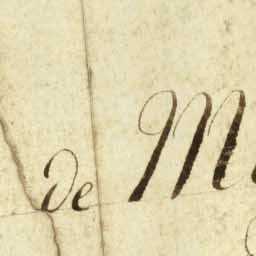 de M